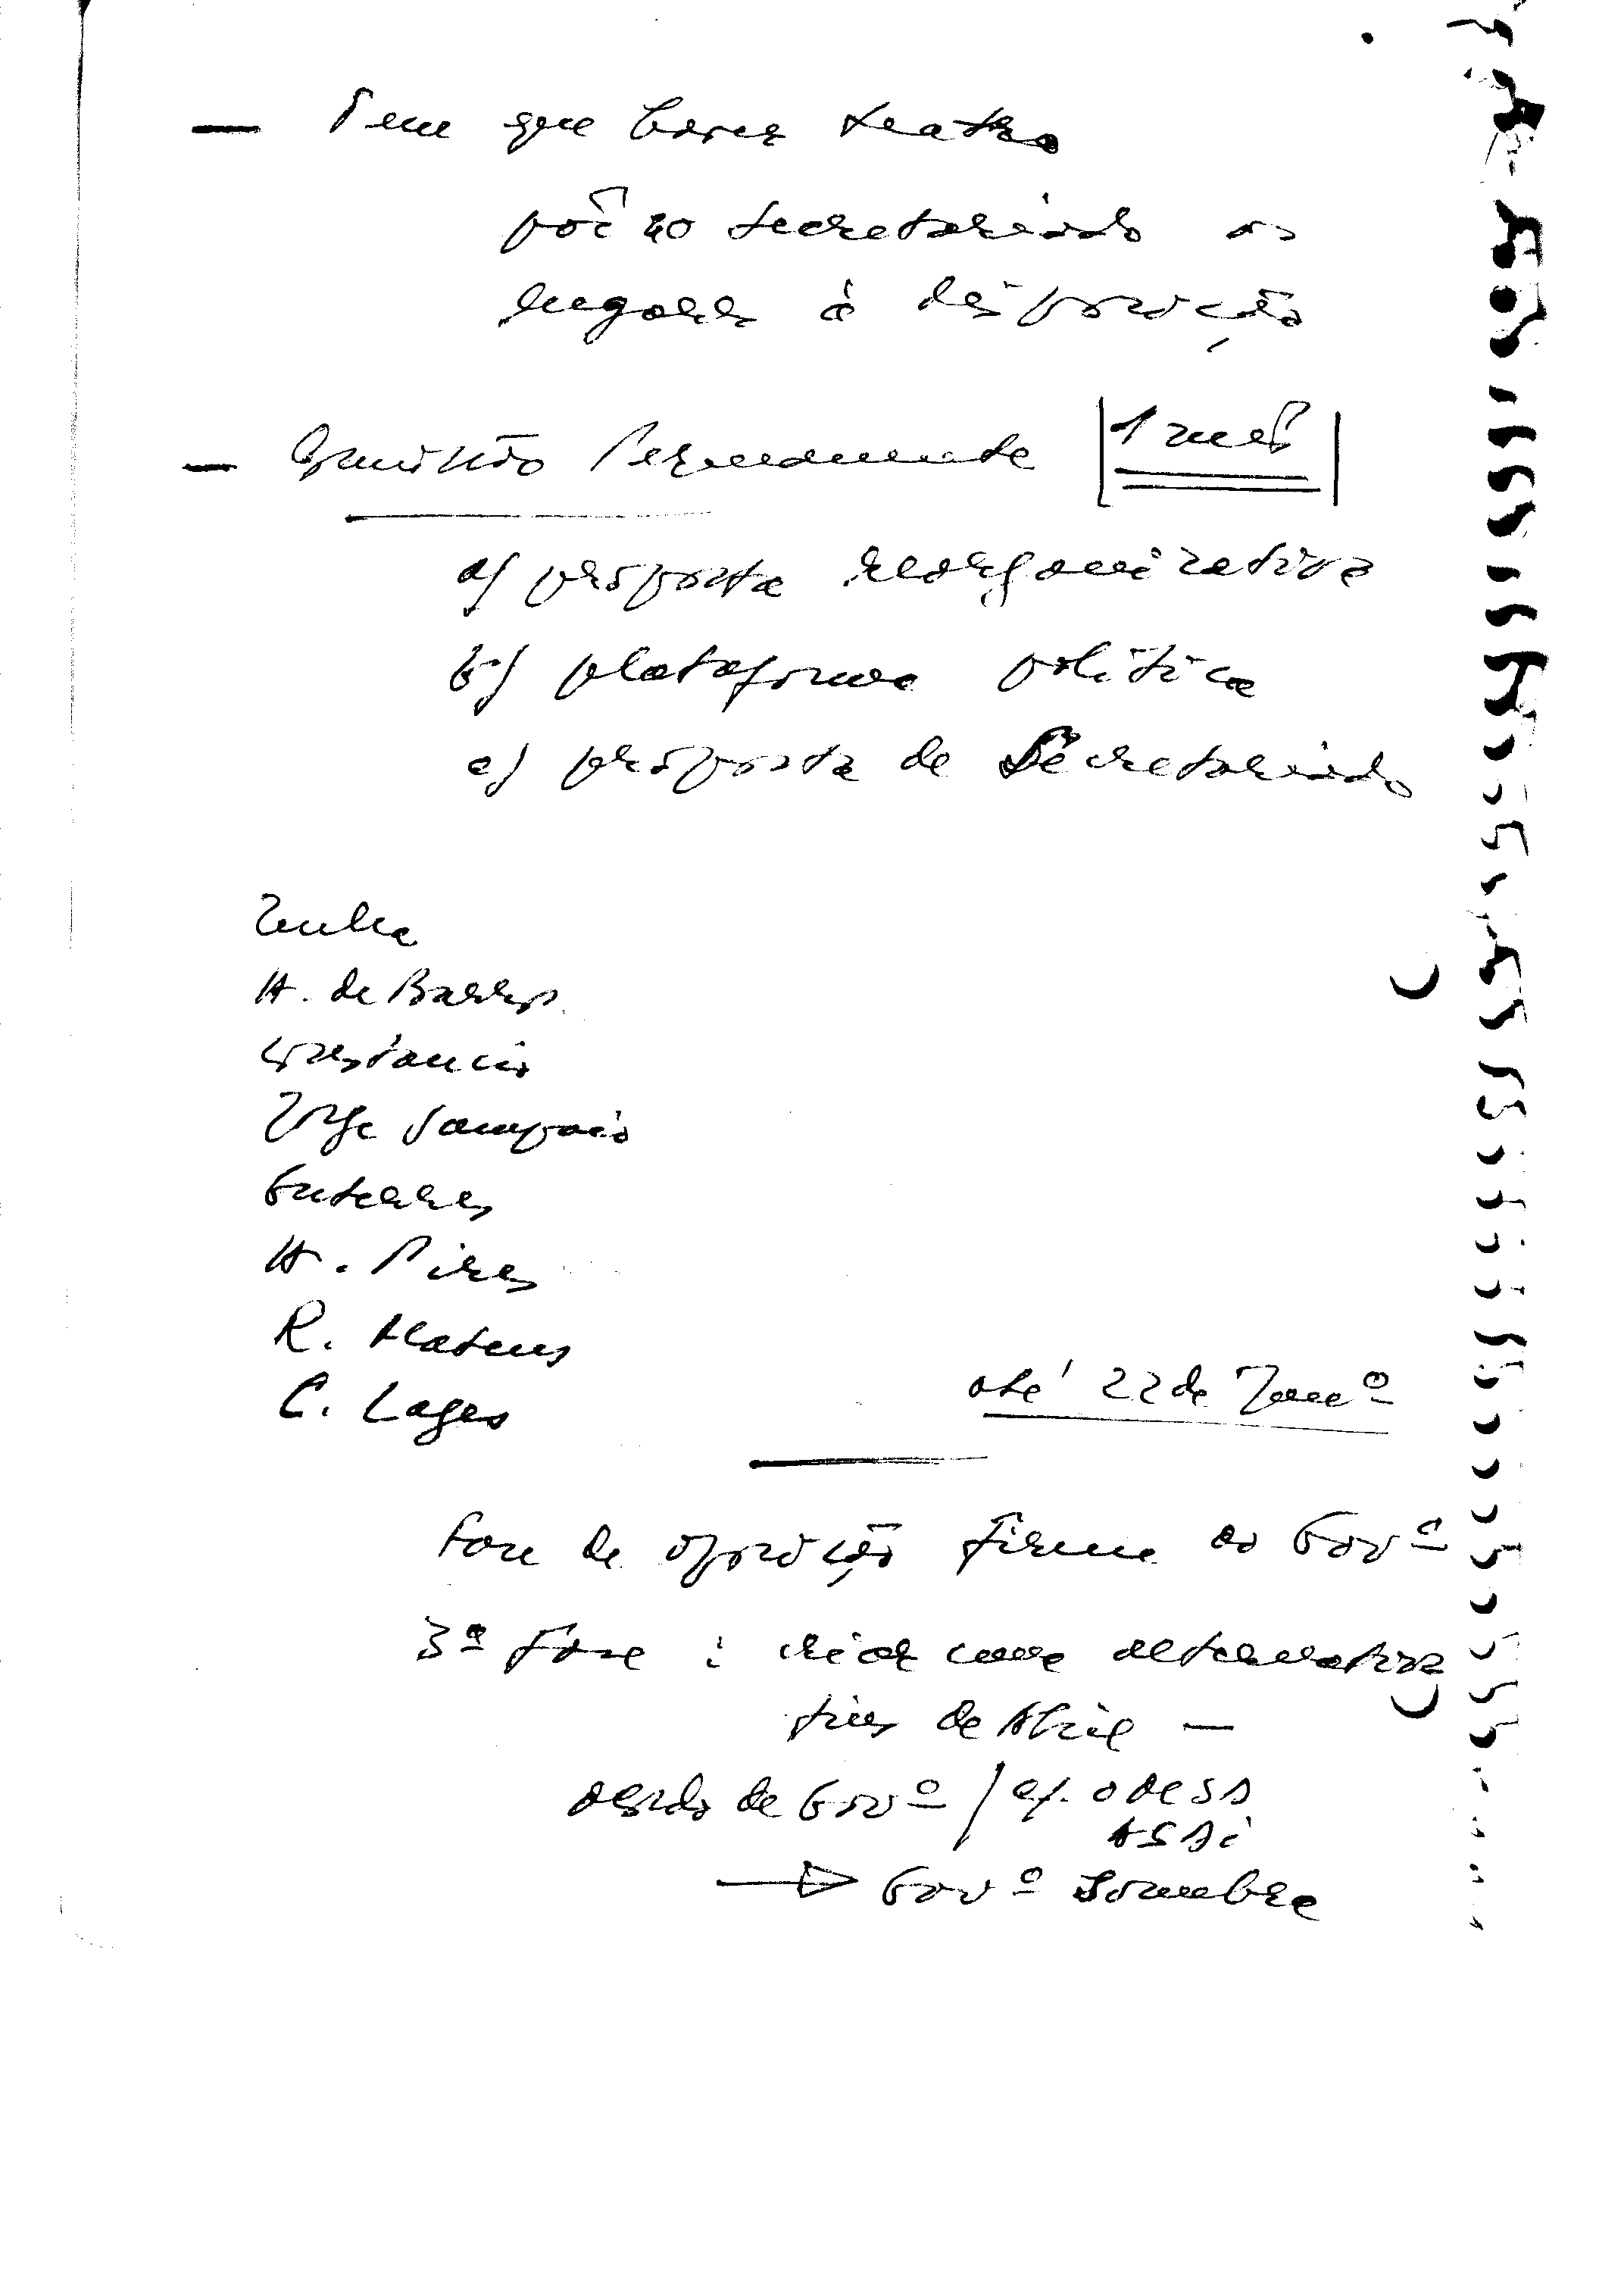 — Tem que haver teatro
pôr no secretariado os
lugares à disposição
— Comissão Permanente |1 mês|
a) proposta reorganizativa
b) plataforma política
c) proposta de Secretariado
Zenha
H. de Barros
Constâncio
Jorge Sampaio
Guterres
H. Pires
R. Mateus
C. Lages
até 22 de Janº
Fase de oposição firme ao Govº
3ª fase : criar uma alternativa
fins de Abril —
acordo de Govº /
→ Govº Sombra